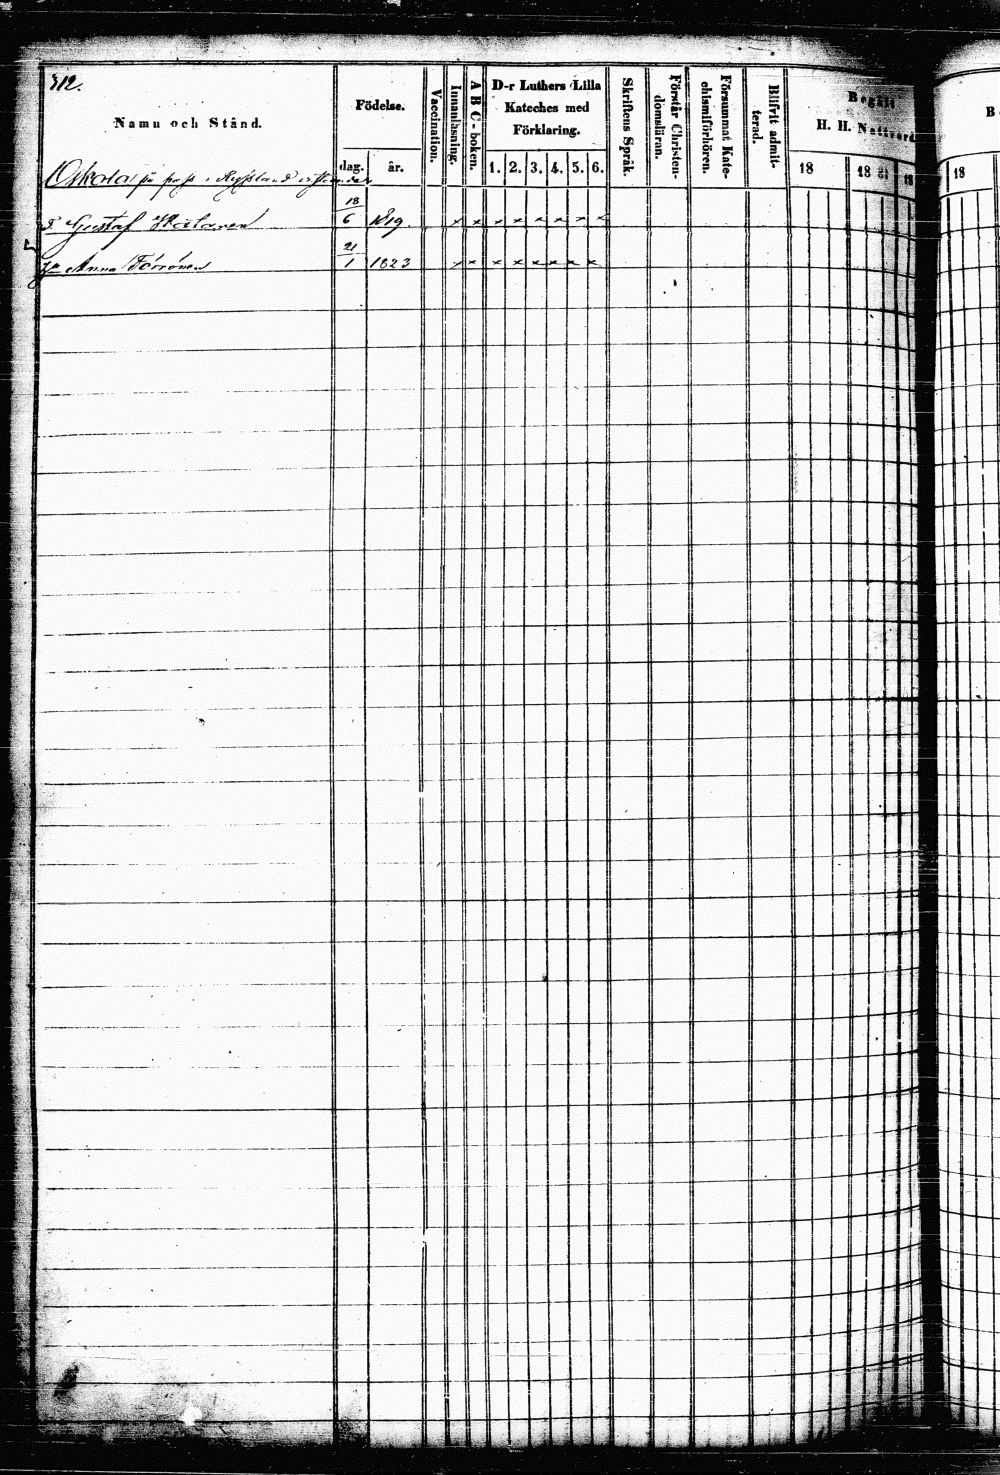 412.
Namn och Stånd.
Födelse.
dag.
år.
Vaccination.
Innanläsning.
A B C - boken.
D-r Luthers Lilla
Kateches med
Förklaring.
1. 2. 3. 4. 5. 6.
Skriftens Språk.
Förstår Christen-
domsläran.
Försummat Kate-
chismiförhören.
Blifvit admit-
terad.
Begått
H. H. Nattvard
18
18 51
18
B
18
på pass i Ryssland
18
6 1819.
Gustaf
x x x x x x x x
21
1 1823
Anna
x x x x x x x x